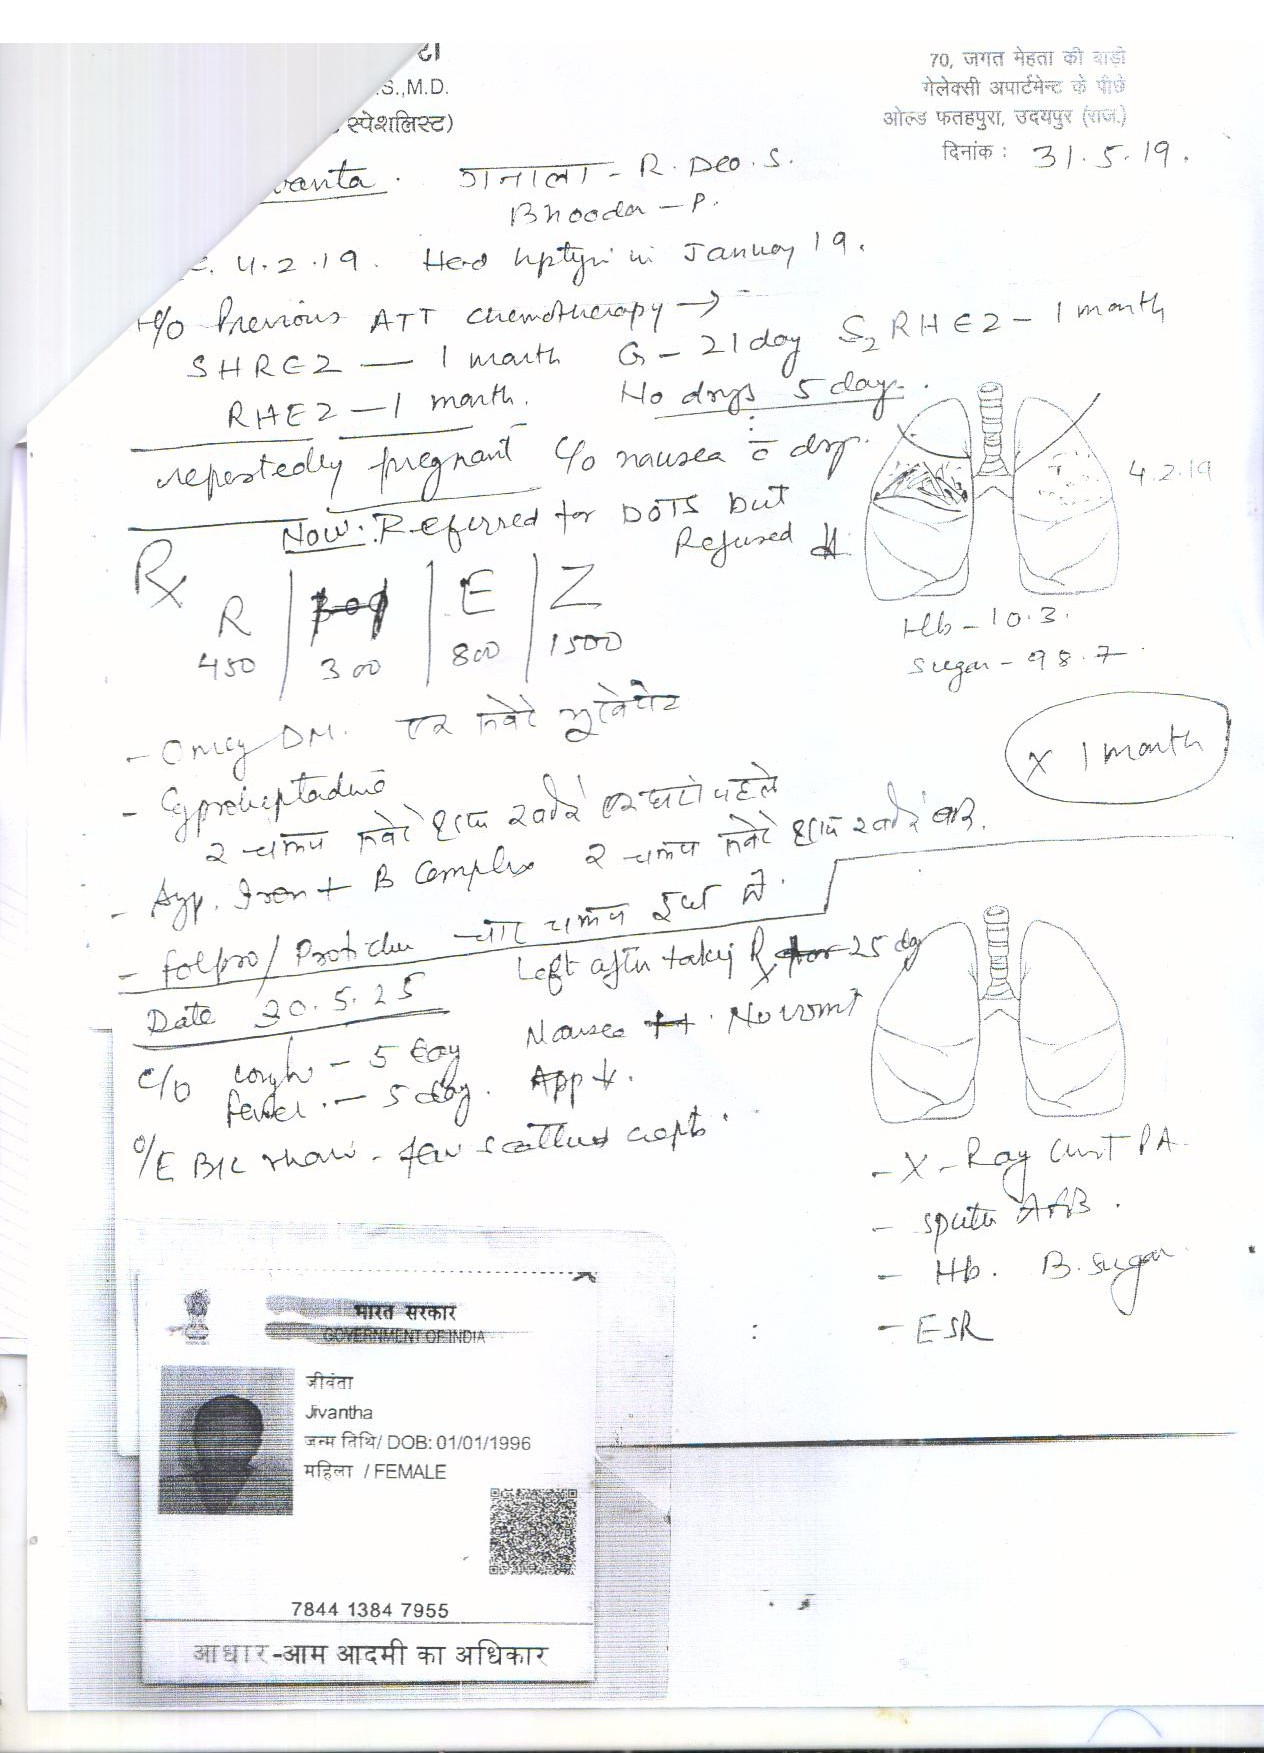 टी
.S.,M.D.
स्पेशलिस्ट)
70, जगत मेहता की बाड़ी
गेलेक्सी अपार्टमेन्ट के पीछे
ओल्ड फतहपुरा, उदयपुर (राज.)
दिनांक : 31.5.19.
vanta. R. Deo. S.
Bhooda - P.
4.2.19. in January 19.
H/o Previous ATT Chemotherapy →
SHREZ — 1 month G - 21 day S2 RHEZ - 1 month
RHEZ - 1 month. No drugs 5 days.
repeatedly pregnant C/o nausea c̄ drug.
4.2.19
Now: Referred for DOTS but
Refused
Rx
R | | E | Z
450 | 300 | 800 | 1500
Hb - 10.3.
Sugar - 98.7
- Omcy DM. एक सवेरे भूखे पेट
x 1 month
- Cyproheptadine
२ चम्मच सवेरे शाम खाने के घंटे पहले
- Syp. Iron + B Complex २ चम्मच सवेरे शाम खाने बाद.
- Folpro/ चार चम्मच दूध में.
Left after taking Rx for 25 day
Date 30.5.25
Nausea ++. No vomit
C/o cough - 5 day
App ↓.
fever. - 5 day.
O/E B/L - few scattered crepts.
- X-Ray Chest PA.
- Sputum AFB.
- Hb. B. Sugar
- ESR
भारत सरकार
GOVERNMENT OF INDIA
जीवंता
Jivantha
जन्म तिथि/ DOB: 01/01/1996
महिला / FEMALE
7844 1384 7955
आधार-आम आदमी का अधिकार